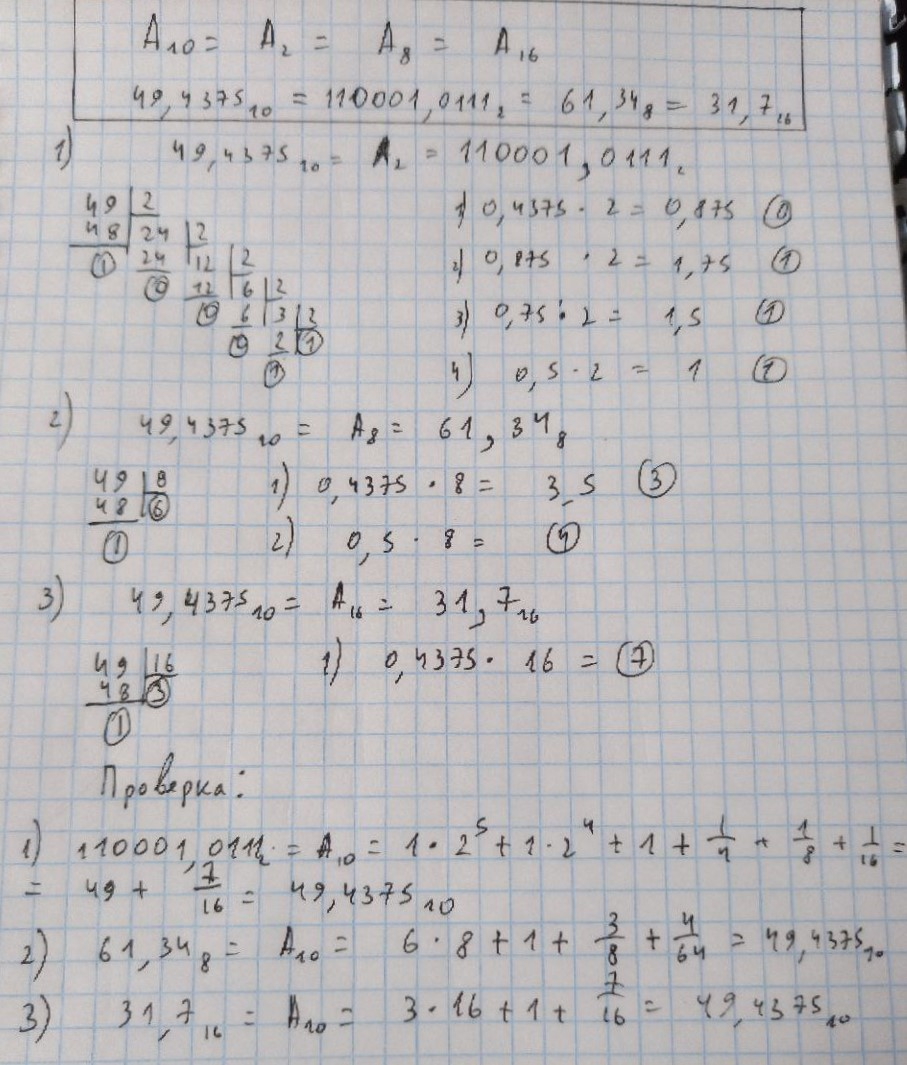 A₁₀ = A₂ = A₈ = A₁₆
49,4375₁₀ = 110001,0111₂ = 61,34₈ = 31,7₁₆
1) 49,4375₁₀ = A₂ = 110001,0111₂
49 | 2
48 | 24 | 2
1 24 | 12 | 2
0 12 | 6 | 2
0 6 | 3 | 2
0 2 | 1
1
1) 0,4375 · 2 = 0,875 0
2) 0,875 · 2 = 1,75 1
3) 0,75 · 2 = 1,5 1
4) 0,5 · 2 = 1 1
2) 49,4375₁₀ = A₈ = 61,34₈
49 | 8
48 | 6
1
1) 0,4375 · 8 = 3,5 3
2) 0,5 · 8 = 4
3) 49,4375₁₀ = A₁₆ = 31,7₁₆
49 | 16
48 | 3
1
1) 0,4375 · 16 = 7
Проверка:
1) 110001,0111₂ = A₁₀ = 1 · 2⁵ + 1 · 2⁴ + 1 + 1/4 + 1/8 + 1/16 =
= 49 + 7/16 = 49,4375₁₀
2) 61,34₈ = A₁₀ = 6 · 8 + 1 + 3/8 + 4/64 = 49,4375₁₀
3) 31,7₁₆ = A₁₀ = 3 · 16 + 1 + 7/16 = 49,4375₁₀